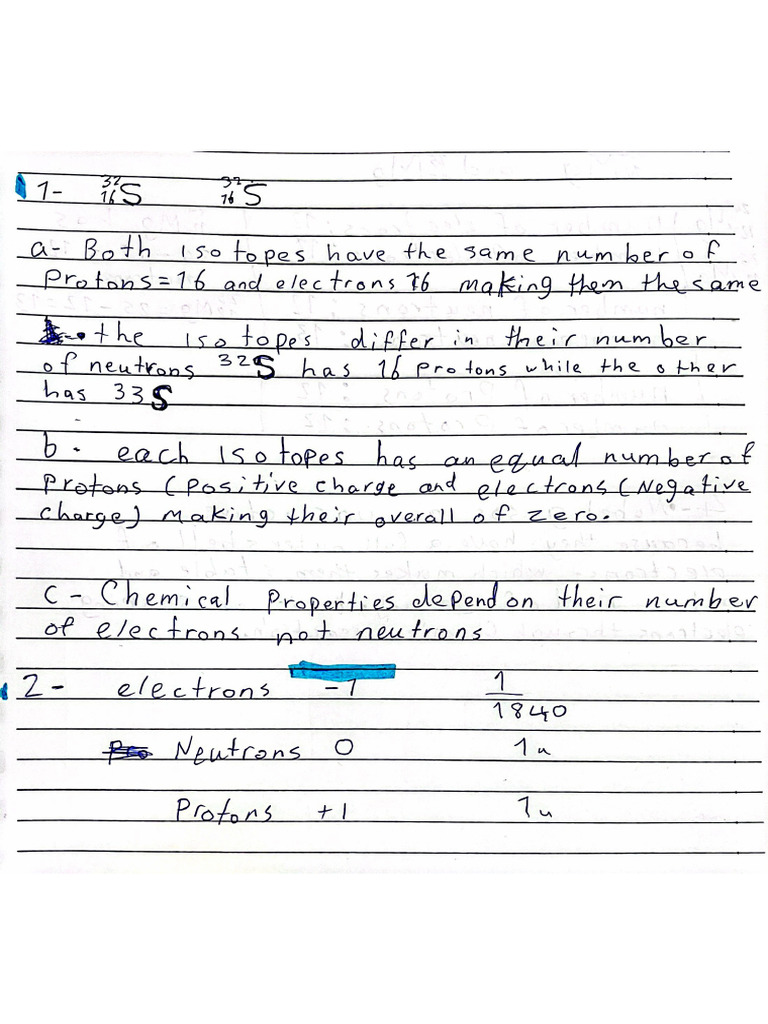 1- ³²₁₆S ³²₁₆S
a- Both isotopes have the same number of
Protons=16 and electrons 16 making them the same
• the isotopes differ in their number
of neutrons ³²S has 16 protons while the other
has 33S
b - each isotopes has an equal number of
Protons (positive charge and electrons (Negative
charge) making their overall of zero.
C - Chemical Properties depend on their number
of electrons not neutrons
2 - electrons -1 1/1840
Neutrons 0 1u
Protons +1 1u